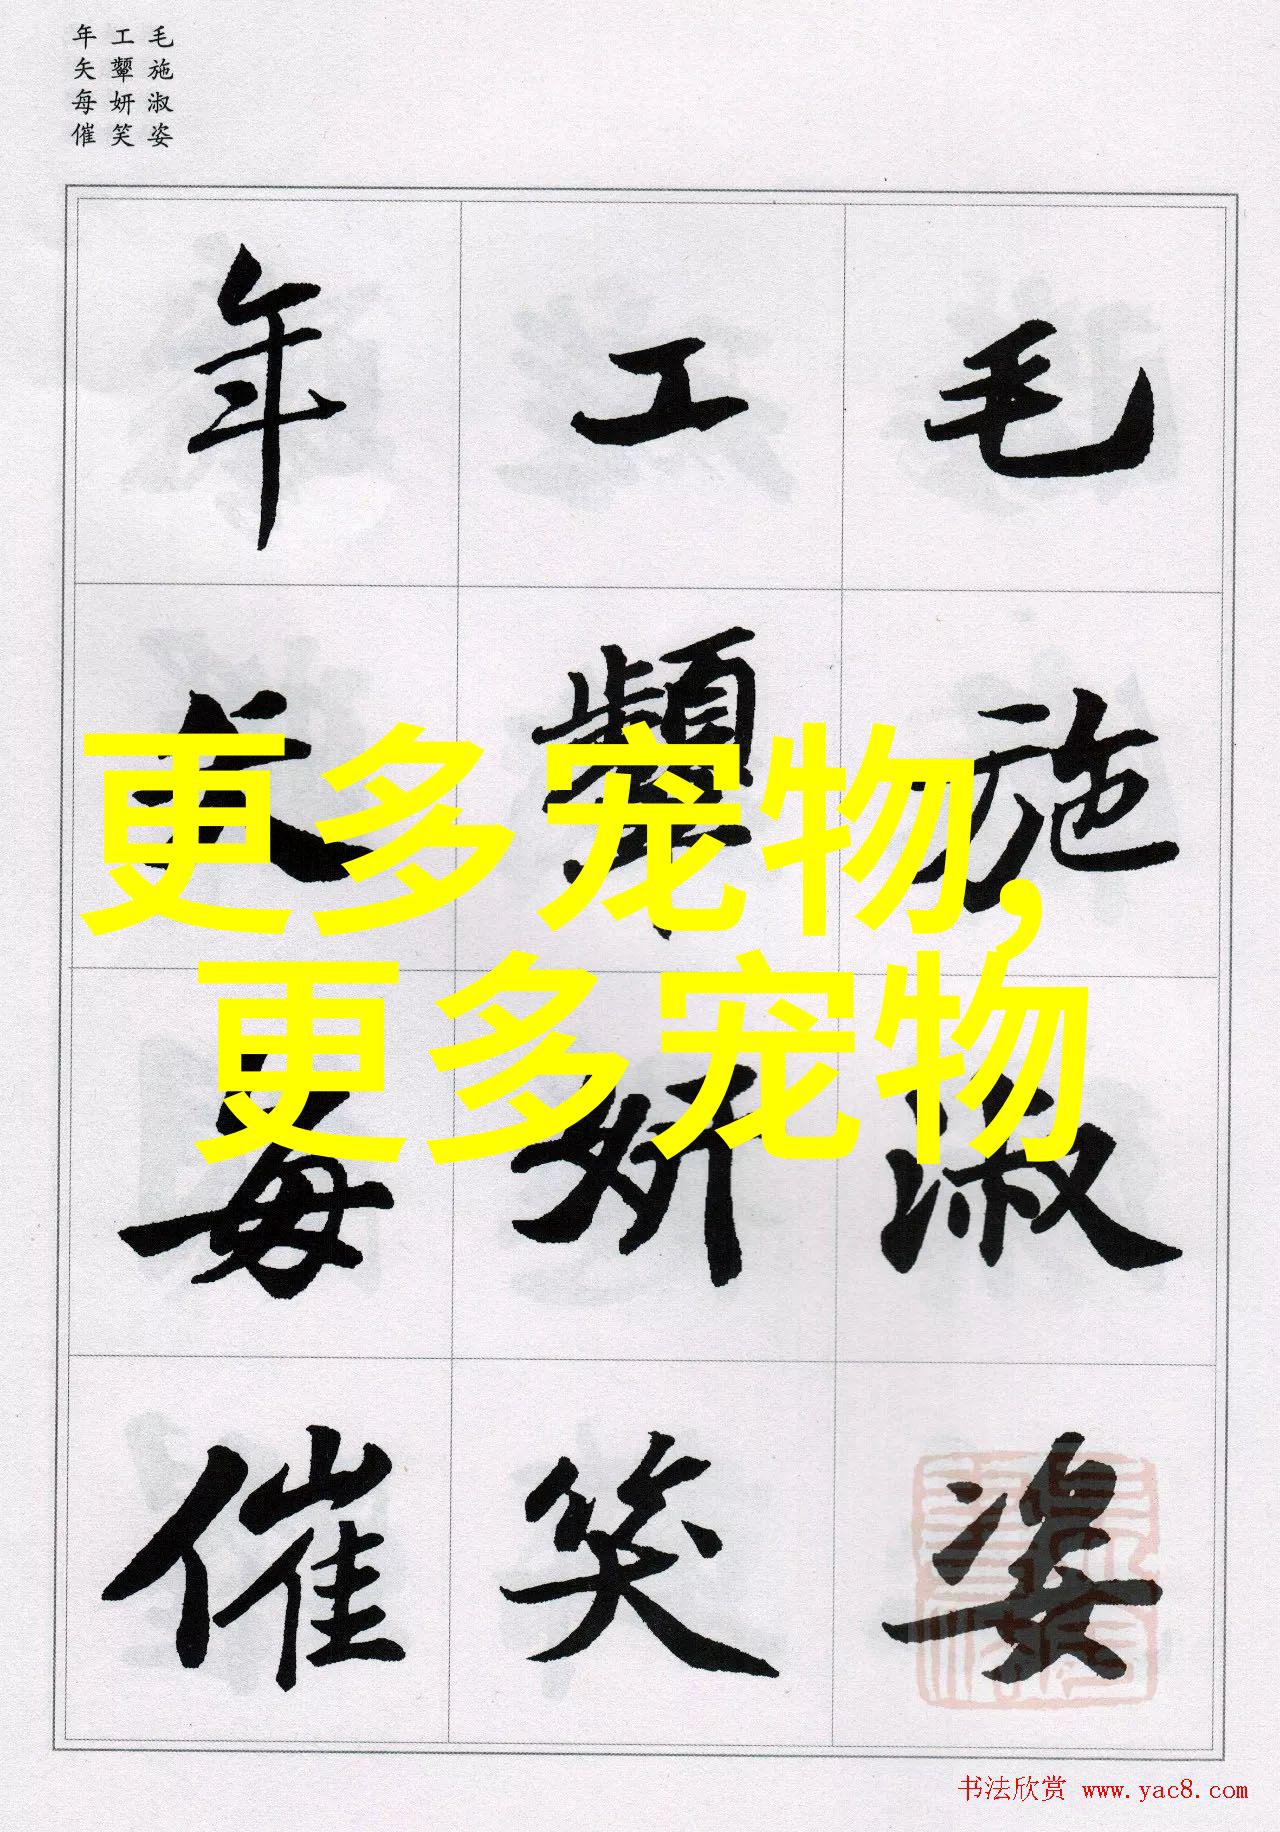 毛施淑姿
工颦妍笑
年矢每催
毛施淑姿
工颦妍笑
年矢每催
更多宠物,
更多宠物
书法欣赏 www.yac8.com